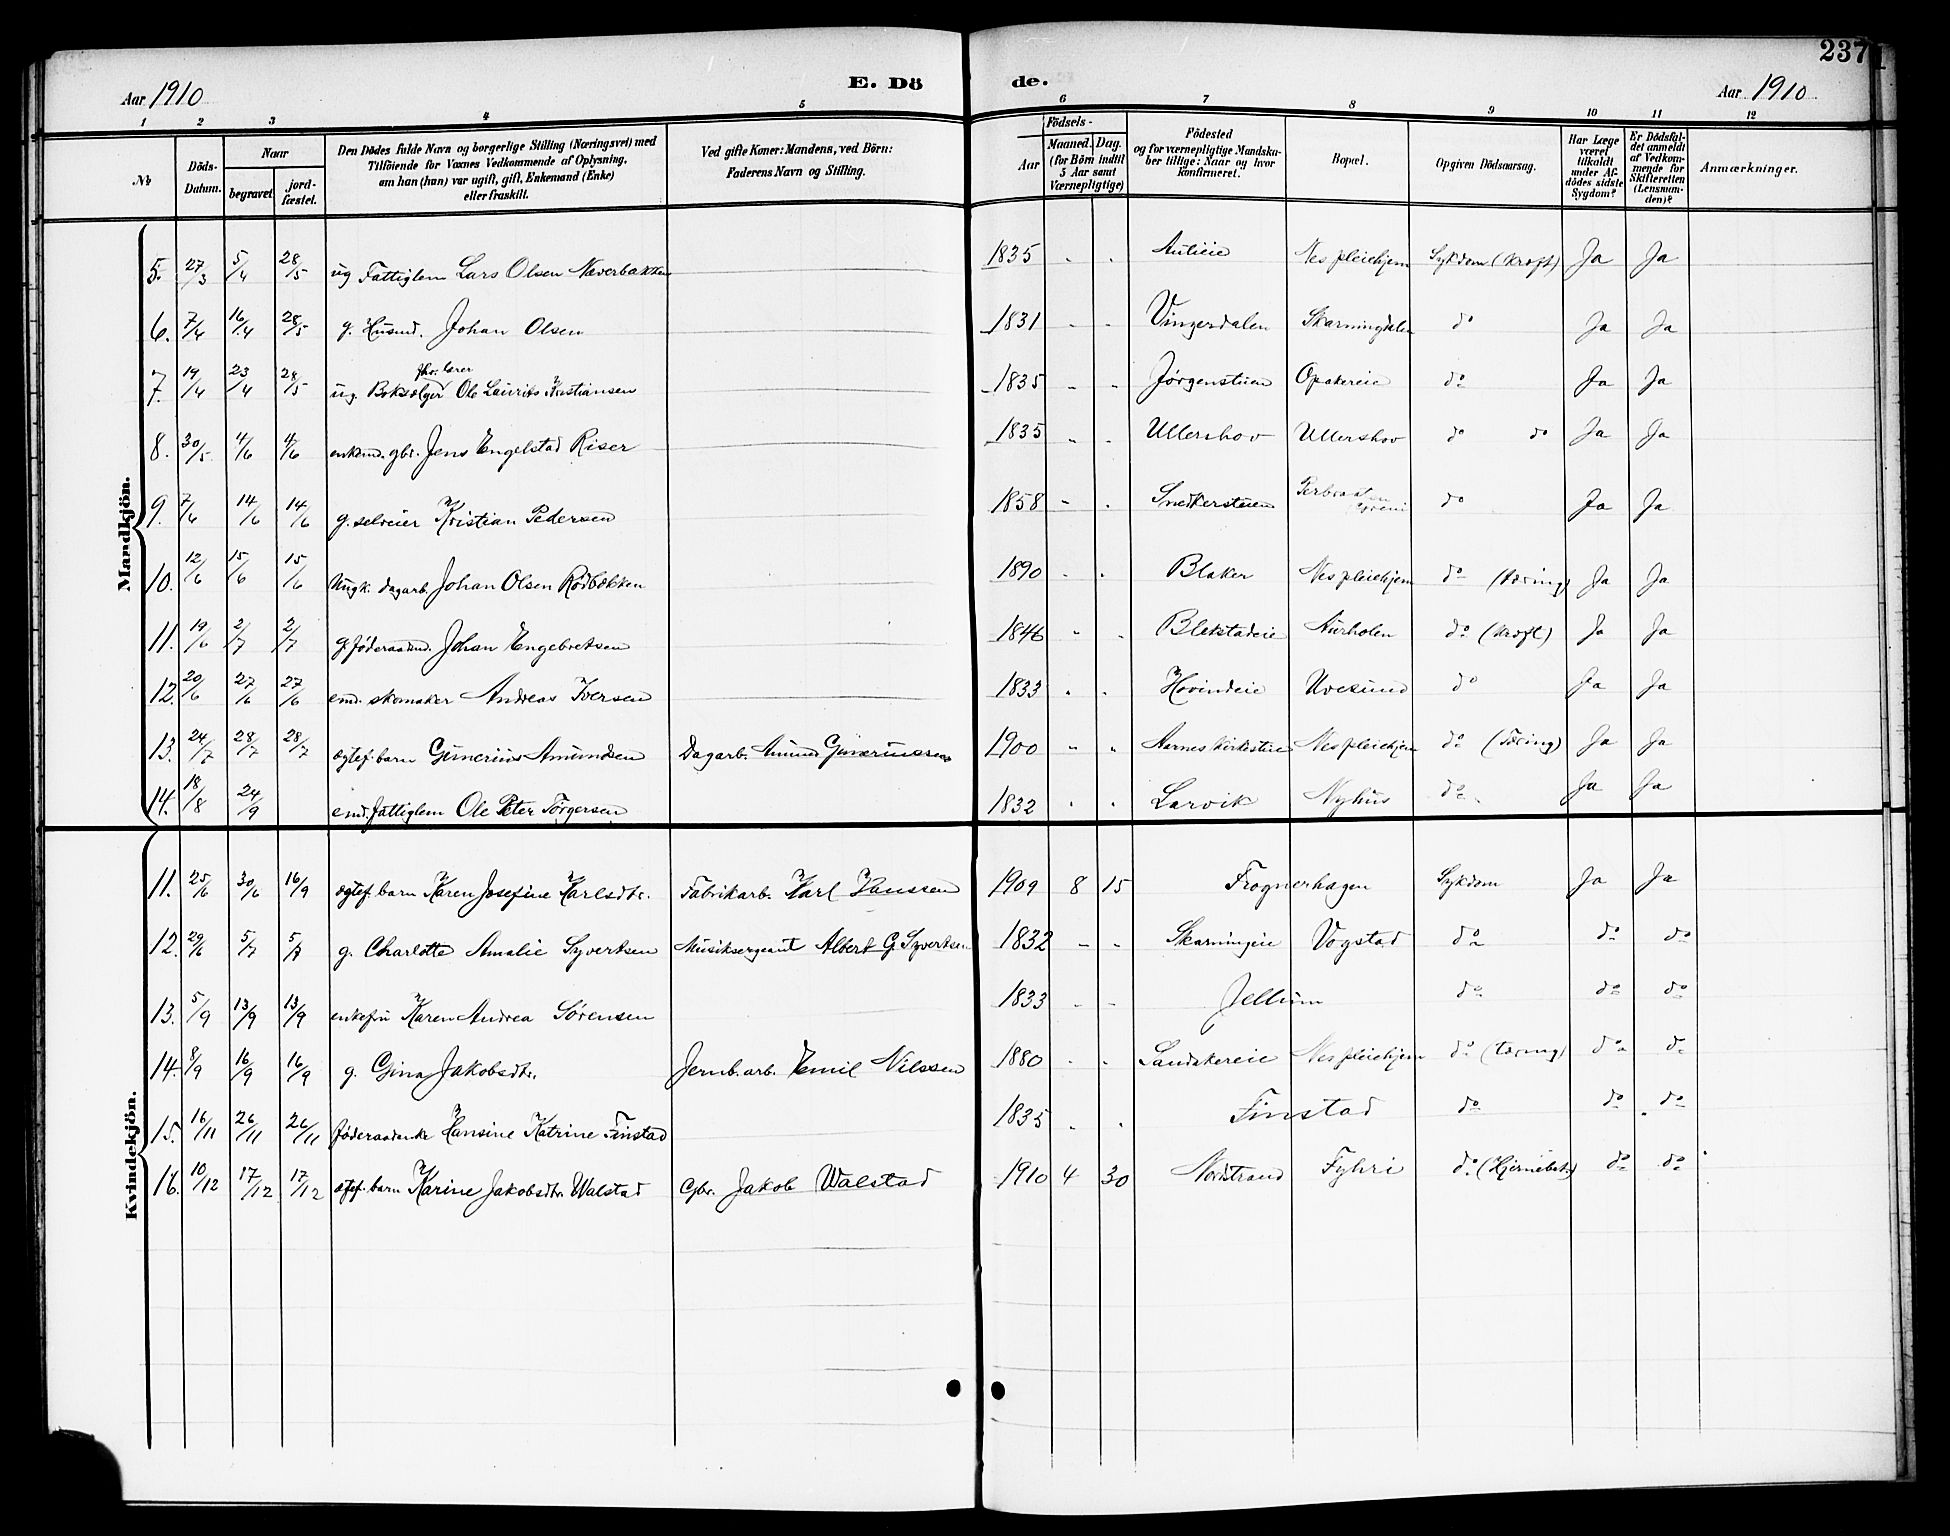 237
E. Dö de.
Aar 1910
Aar 1910
1 2 3 4 5 6 7 8 9 10 11 12
№
Döds-Datum.
Naar
begravet
jord-fæstet.
Den Dödes fulde Navn og borgerlige Stilling (Næringsvei) med
Tilföiende for Voxnes Vedkommende af Oplysning,
om han (hun) var ugift, gift, Enkemand (Enke)
eller fraskilt.
Ved gifte Koner: Mandens, ved Börn:
Faderens Navn og Stilling.
Födsels-
Aar
Maaned. Dag.
(for Börn indtil
5 Aar samt
Værnepligtige)
Födested
og for værnepligtige Mandska-
ber tillige: Naar og hvor
konfirmeret.
Bopæl.
Opgiven Dödsaarsag.
Har Læge
været
tilkaldt
under Af-
dödes sidste
Sygdom?
Er Dödsfal-
det anmeldt
af Vedkom-
mende for
Skifteretten
(Lensman-
den)?
Anmærkninger.
Mandkjön.
5. 27/3 5/4 28/5 ug Fattiglem Lars Olsen Næverbakken 1835 " " Autieie Nes pleiehjem Sykdom (Kræft) Ja Ja
6. 7/4 16/4 28/5 g. Husmd. Johan Olsen 1831 " " Vingerdalen Skarningdalen do Ja Ja
7. 19/4 23/4 28/5 ug. Boksælger fhv. lærer Ole Laurits Kristiansen 1835 " " Jørgenstuen Opakereie do Ja Ja
8. 30/5 4/6 4/6 enkemd. gbr. Jens Engelstad Riser 1835 " " Ullershov Ullershov do do Ja Ja
9. 7/6 14/6 14/6 g. selveier Kristian Pedersen 1858 " " Snedkerstuen do Ja Ja
10. 12/6 15/6 15/6 Ungk. dagarb. Johan Olsen Rødbækken 1890 " " Blaker Nes pleiehjem do (tæring) Ja Ja
11. 19/6 2/7 2/7 g. føderaadmd. Johan Engebretsen 1846 " " Blekstadeie Aurholen do (Kræft) Ja Ja
12. 20/6 27/6 27/6 emd. skomaker Andreas Iversen 1833 " " Hovindeie Uvesund do Ja Ja
13. 24/7 28/7 28/7 egtef. barn Gunerius Amundsen Dagarb. Amund Guneriussen 1900 " " Aarnes Kirkestue Nes pleiehjem do (Tæring) Ja Ja
14. 18/8 24/9 emd. fattiglem Ole Peter Torgersen 1832 " " Larvik Nyhus do Ja Ja
Kvindekjön.
11. 25/6 30/6 16/9 egtef. barn Karen Josefine Karlsdtr. Fabrikarb. Karl Hanssen 1909 8 15 Frognerhagen Sykdom Ja Ja
12. 29/6 5/7 5/7 g. Charlotte Amalie Syvertsen Musiksergeant Albert G. Syvertsen 1832 " " Skarningeie Vogstad do do do
13. 5/9 13/9 13/9 enkefru Karen Andrea Sørensen 1833 " " Jellum do do do
14. 8/9 16/9 16/9 g. Gina Jakobsdtr. Jernb. arb. Emil Nilssen 1880 " " Sandakereie Nes pleiehjem do (tæring) do do
15. 16/11 26/11 26/11 føderaadenke Hansine Katrine Finstad 1835 " " Finstad do do do
16. 10/12 17/12 17/12 egtef. barn Karine Jakobsdtr. Walstad Gbr. Jakob Walstad 1910 4 30 Nordstrand Fyhri do (Hjernebet.) do do